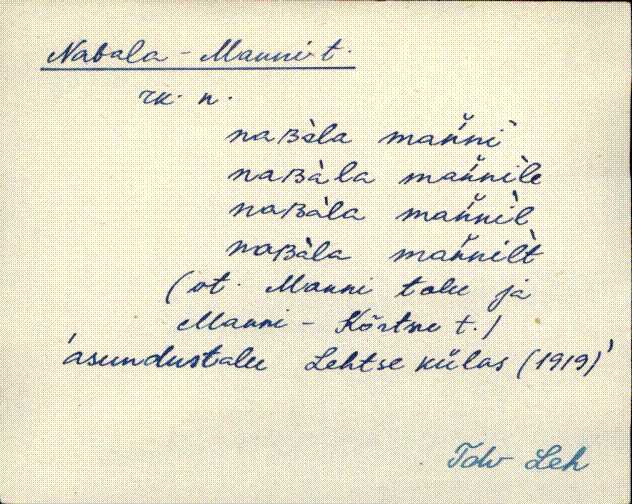 Nabala - Manni t.
rk. n.
naʙàla mańńì
naʙàla mańńìle
naʙàla mańńìl
naʙàla mańńìlt
(vt. Manni talu ja
Manni - Kõrtsu t.)
'asundustalu Lehtse külas (1919)'
Tdv Leh